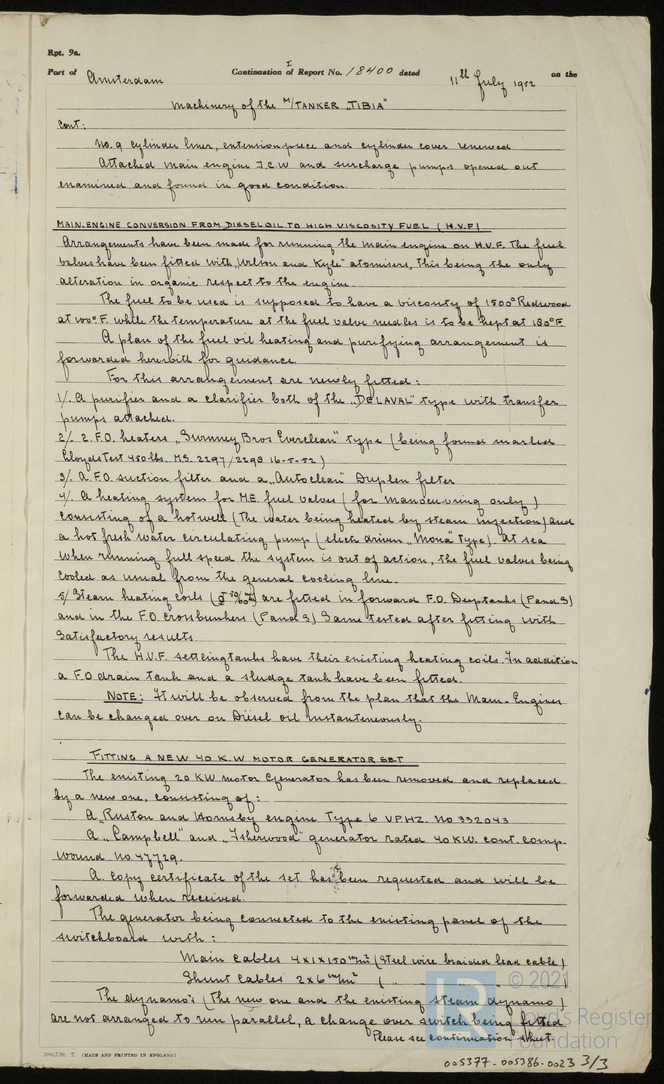 Rpt. 9a.
Port of Amsterdam Continuation of Report No. I 18400 dated 11th July 1952 on the
Machinery of the M/TANKER „TIBIA"
Cont:
No. 9 cylinder liner, extension piece and cylinder cover renewed
Attached main engine J.C.W and surcharge pumps opened out
examined and found in good condition.
MAIN-ENGINE CONVERSION FROM DIESEL OIL TO HIGH VISCOSITY FUEL (H.V.F)
Arrangements have been made for running the main engine on H.V.F. The fuel
valves have been fitted with „Wilson and Kyle" atomisers, this being the only
alteration in organic respect to the engine.
The fuel to be used is supposed to have a viscosity of 1500° Redwood
at 100° F. while the temperature at the fuel valve needles is to be kept at 180° F.
A plan of the fuel oil heating and purifying arrangement is
forwarded herewith for guidance
For this arrangement are newly fitted:
1/. A purifier and a clarifier both of the „DE LAVAL" type with transfer
pumps attached.
2/. 2 F.O. heaters „Gurnney Bros Everclean" type (being found marked
Lloyds test 450 lbs. MS. 2297/2298 16-5-52)
3/. A F.O. suction filter and a „Autoclean" Duplex filter
4/. A heating system for M.E. fuel valves (for manoeuvring only)
consisting of a hotwell (the water being heated by steam injection) and
a hot fresh water circulating pump (electr. driven „Mono" type). At sea
when running full speed the system is out of action, the fuel valves being
cooled as usual from the general cooling line.
5/ Steam heating coils ( ) are fitted in forward F.O. Deeptanks (P and S)
and in the F.O. Crossbunkers (P and S) Same tested after fitting with
satisfactory results.
The H.V.F. settlingtanks have their existing heating coils. In addition
a F.O drain tank and a sludge tank have been fitted.
NOTE: It will be observed from the plan that the Main-Engines
can be changed over on Diesel oil instanteneously.
FITTING A NEW 40 K.W MOTOR GENERATOR SET
The existing 20 KW motor Generator has been removed and replaced
by a new one, consisting of:
A „Ruston and Hornsby engine Type 6 VPHZ. No 332043
A „Campbell" and „Isherwood" generator rated 40 KW. cont. comp.
wound No. 47729.
A copy certificate of the set has been requested and will be
forwarded when received.
The generator being connected to the existing panel of the
switchboard with:
Main cables 4x1x150 m/m² (Steel wire braided lead cable)
Shunt cables 2x6 m/m² ( „ „ „ „ )
The dynamo's (the new one and the existing steam dynamo)
are not arranged to run parallel, a change over switch being fitted
Please see continuation sheet.
(MADE AND PRINTED IN ENGLAND)
005377-005386-0023 3/3
LR © 2021
Lloyd's Register
Foundation